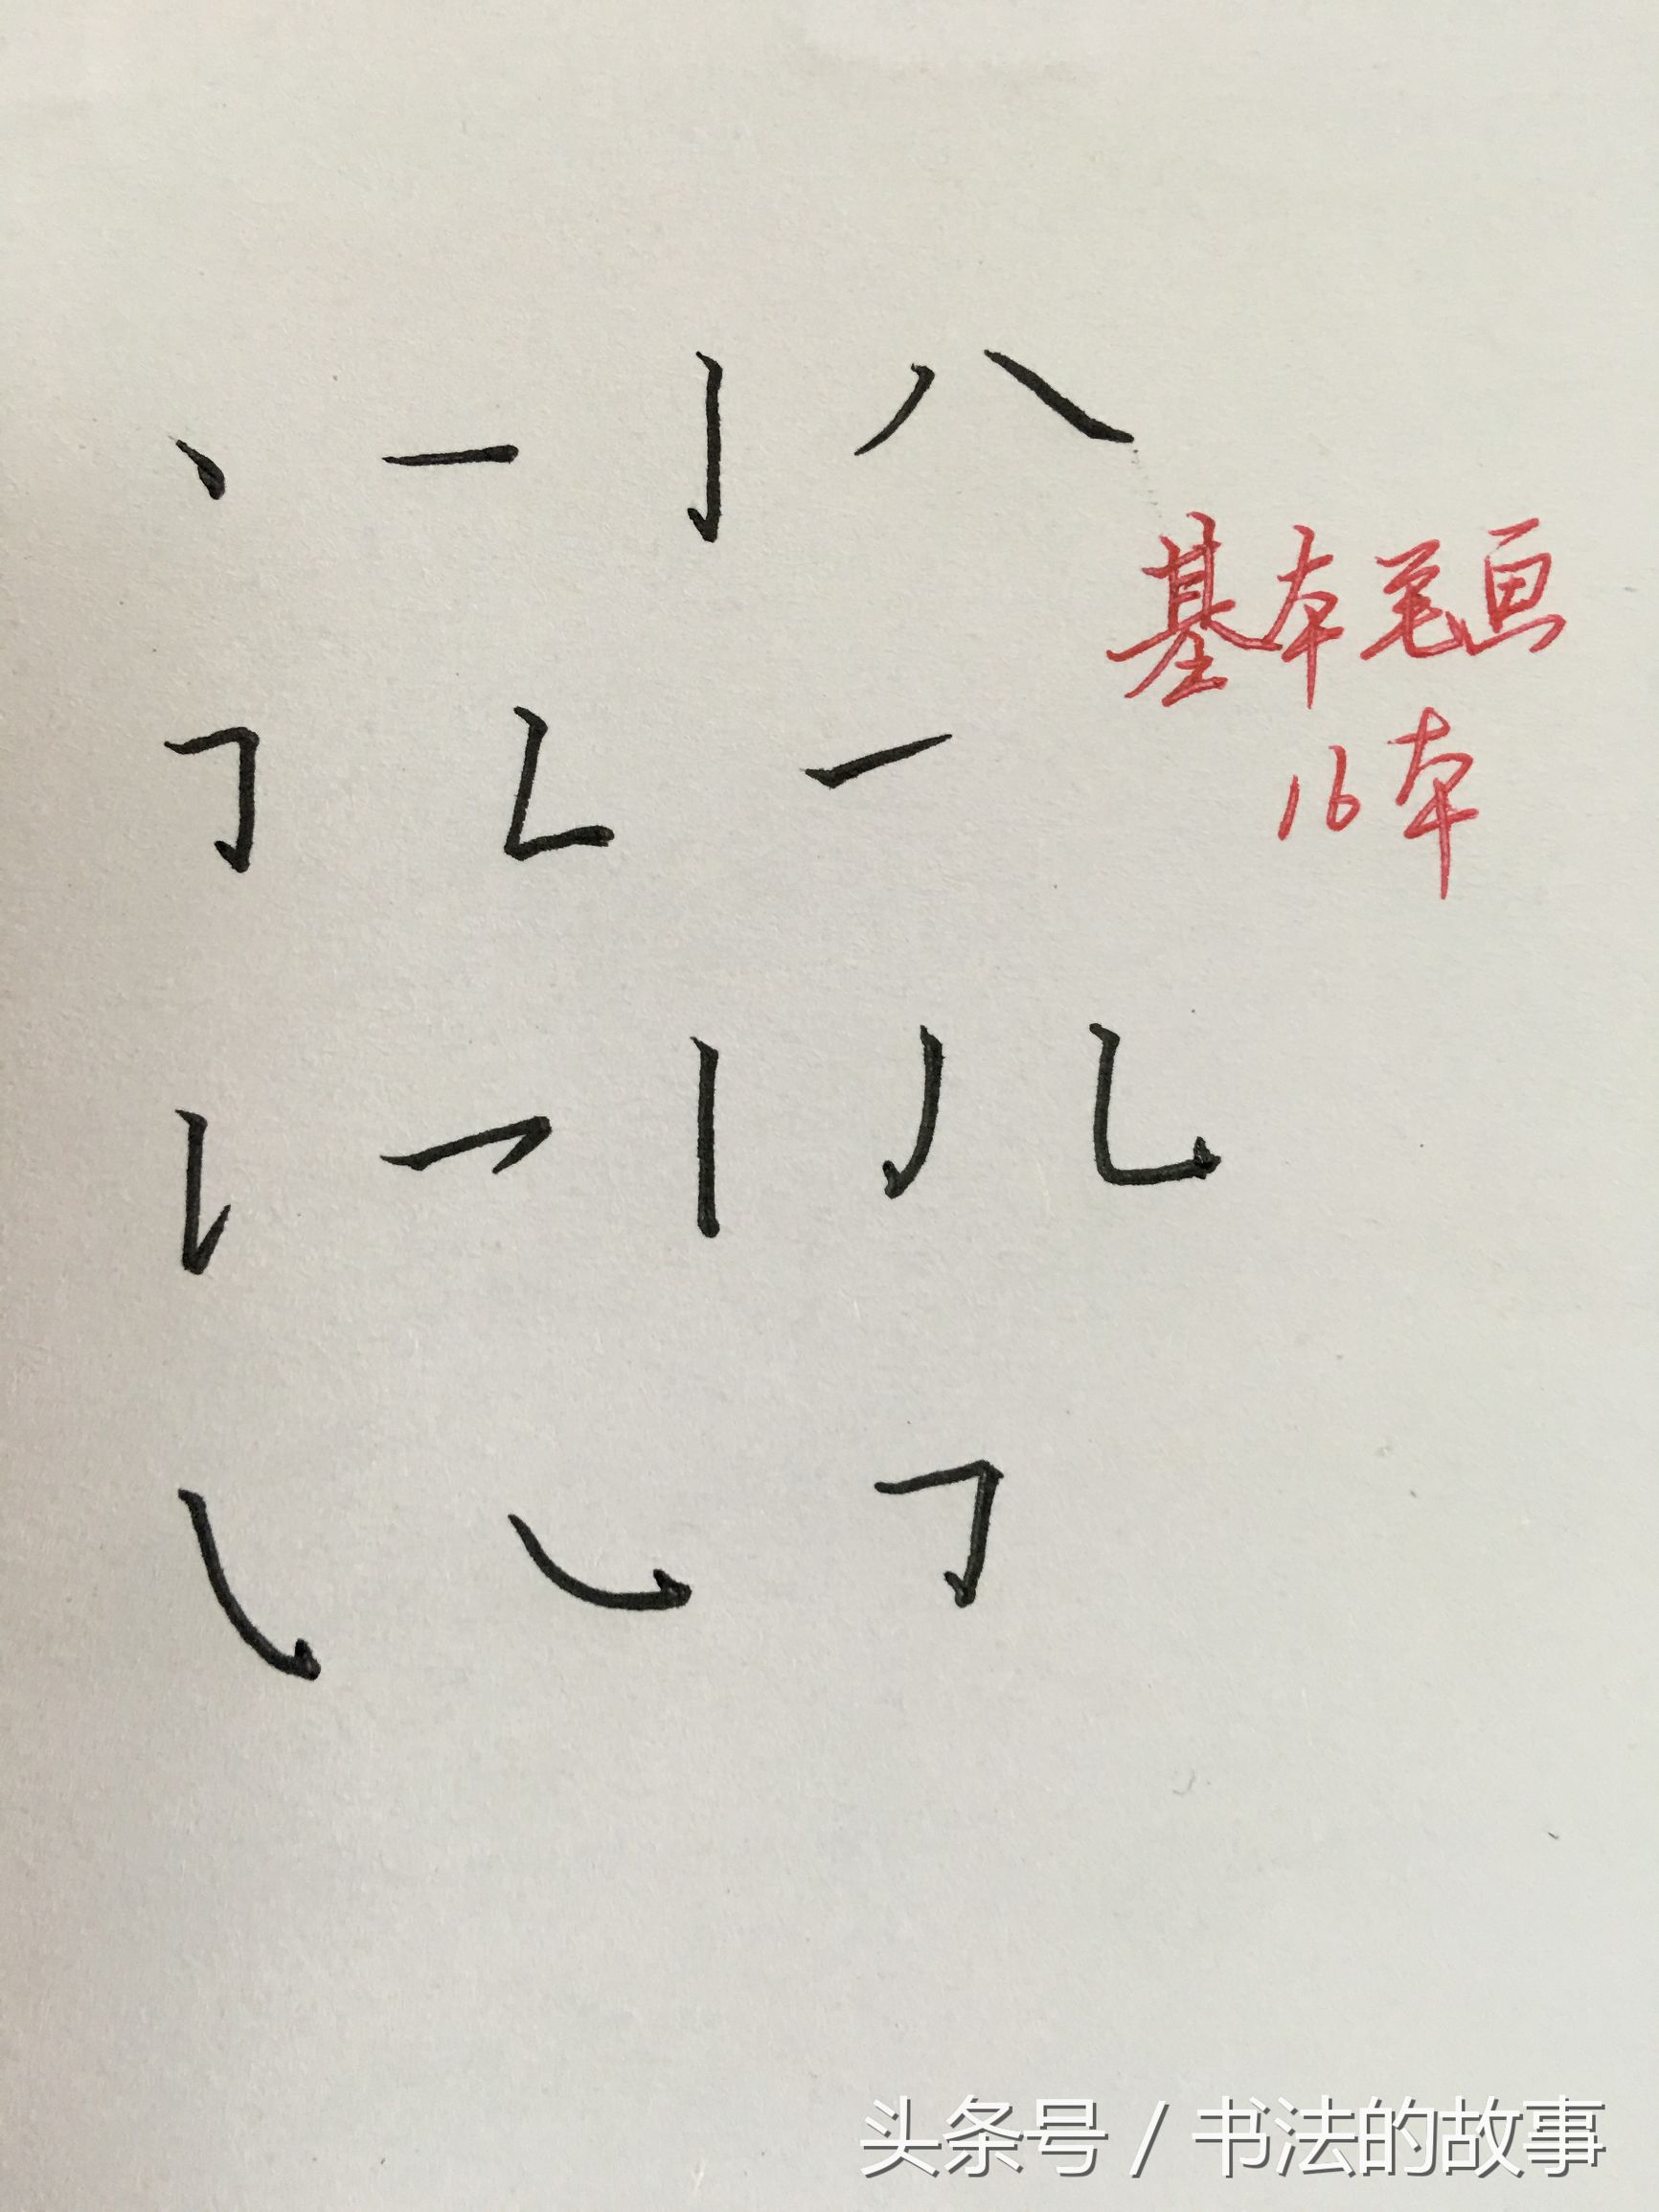 丶 一 亅 丿 ㇏
𠃌 𠃊 ㇀
𠄌 乛 丨 亅 乚
㇂ ㇃ 𠃌
基本笔画
16本
头条号 / 书法的故事